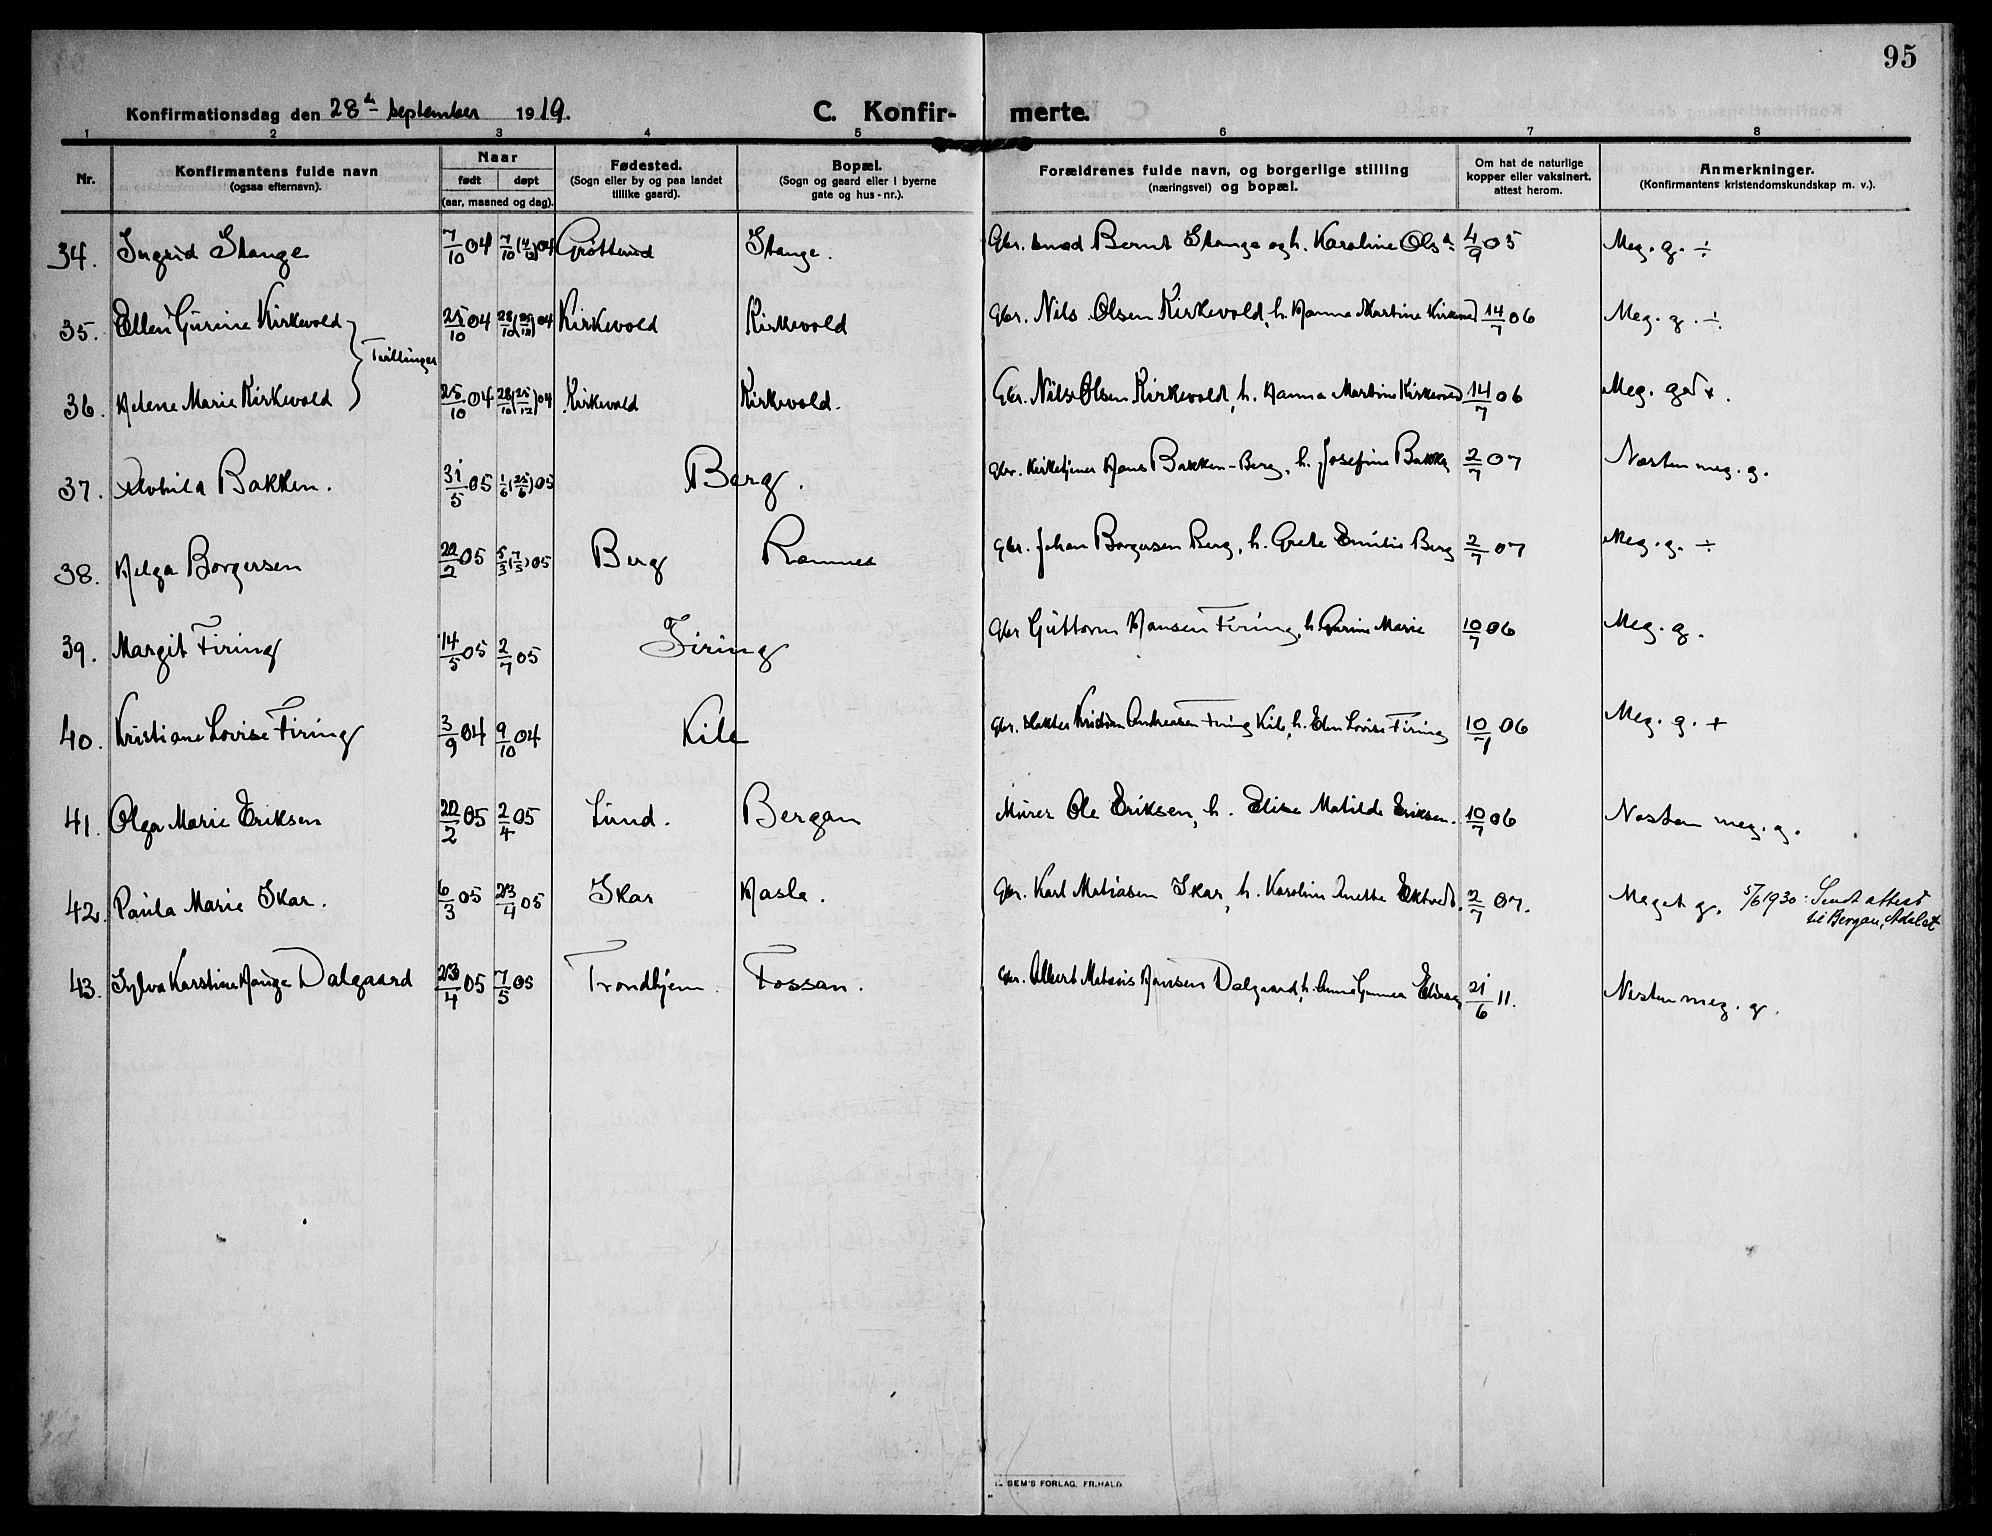 95
Konfirmationsdag den 28de september 1919. C. Konfirmerte.
1 2 3 4 5 6 7 8
Nr. Konfirmantens fulde navn (ogsaa efternavn). Naar født døpt (aar, maaned og dag). Fødested. (Sogn eller by og paa landet tillike gaard). Bopæl. (Sogn og gaard eller i byerne gate og hus-nr.). Forældrenes fulde navn, og borgerlige stilling (næringsvei) og bopæl. Om hat de naturlige kopper eller vaksinert, attest herom. Anmerkninger. (Konfirmantens kristendomskundskap m. v.).
34. Ingrid Stange 7/10 04 7/10 (4/12) 04 Grøtterud Stange. Gbr. Bernt Stange og h. Karoline Olsdr 4/9 05 Meg. g. ÷
35. Ellen Gurine Kirkevold 25/10 04 28/10 (25/12) 04 Kirkevold Kirkevold Gbr. Nils Olsen Kirkevold, h. Hanna Martine Kirkevold 14/7 06 Meg. g. ÷
Tvillinger
36. Helene Marie Kirkevold 25/10 04 28/10 (25/12) 04 Kirkevold Kirkevold. Gbr. Nils Olsen Kirkevold, h. Hanna Martine Kirkevold 14/7 06 Meg. godt +.
37. Alvhild Bakken. 31/5 05 1/6 (25/6) 05 Berg. Gbr. Kirketjener Hans Bakken - Berg, h. Josefine Bakken 2/7 07 Næsten meg. g.
38. Helga Borgersen 22/2 05 5/3 (7/5) 05 Berg Ramnes Gbr. Johan Borgersen Berg, h. Grete Emilie Berg 2/7 07 Meg. g. ÷
39. Margit Firing 14/5 05 2/7 05 Firing Gbr Guttorm Hansen Firing, h. Gurine Marie 10/7 06 Meg. g.
40. Kristiane Lovise Firing 3/9 04 9/10 04 Kile Gbr. Kristian Andreasen Firing Kile, h. Elen Lovise Firing 10/7 06 Meg. g. +
41. Olga Marie Eriksen 22/2 05 2/4 05 Lund. Bergan Murer Ole Eriksen, h. Elise Matilde Eriksen. 10/7 06 Næsten meg. g.
42. Paula Marie Skar. 6/3 05 23/4 05 Skar Hasle. Gbr. Karl Matiasen Skar, h. Karoline Anette Ektvedt. 2/7 07. Meget g. 5/6 1930: Sendt attest
til Bergan, Ådalet
43. Sylva Karstine Hauge Dalgaard 23/4 05 7/5 05 Trondhjem. Fossan. Gbr. Albert Mathæus Hansen Dalgaard, h. Anna Gunnea 21/6 11. Næsten meg. g.
SEM'S FORLAG. FR.HALD